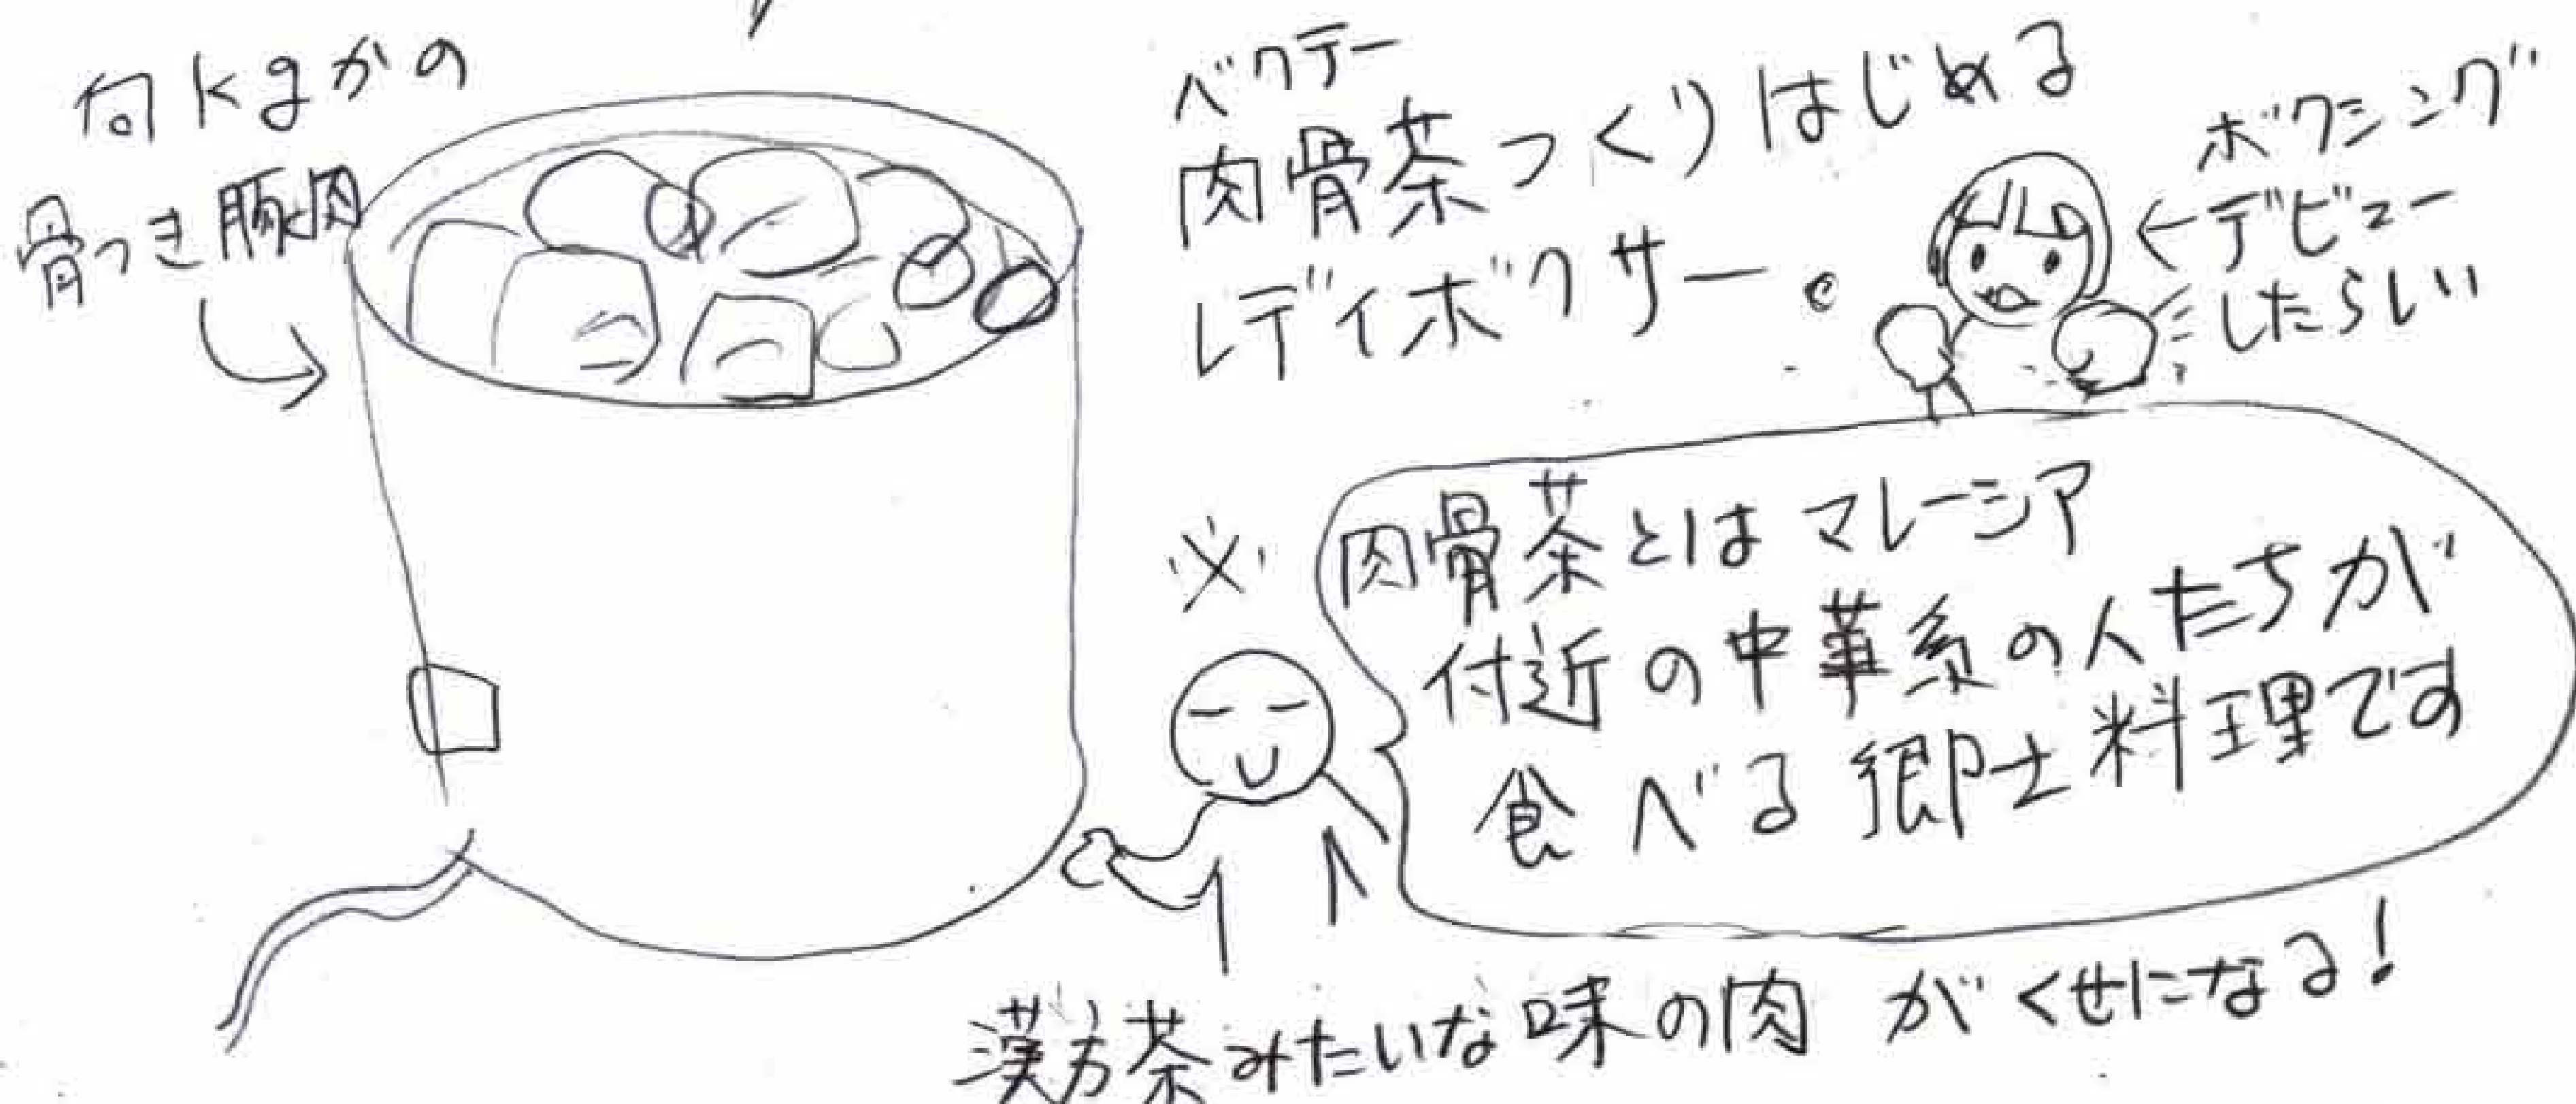 何kgかの
骨つき豚肉
ベクテー
肉骨茶つくりはじめる
レディボクサー。
ボクシング
←デビュー
したらしい
※
肉骨茶とはマレーシア
付近の中華系の人たちが
食べる郷土料理です
漢方茶みたいな味の肉がくせになる!